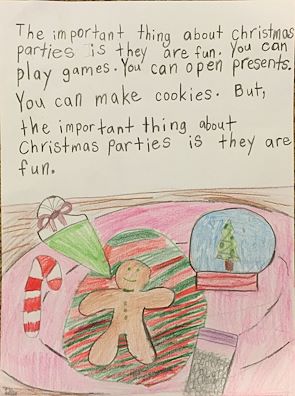 The important thing about christmas
parties is they are fun. You can
play games. You can open presents.
You can make cookies. But,
the important thing about
Christmas parties is they are
fun.